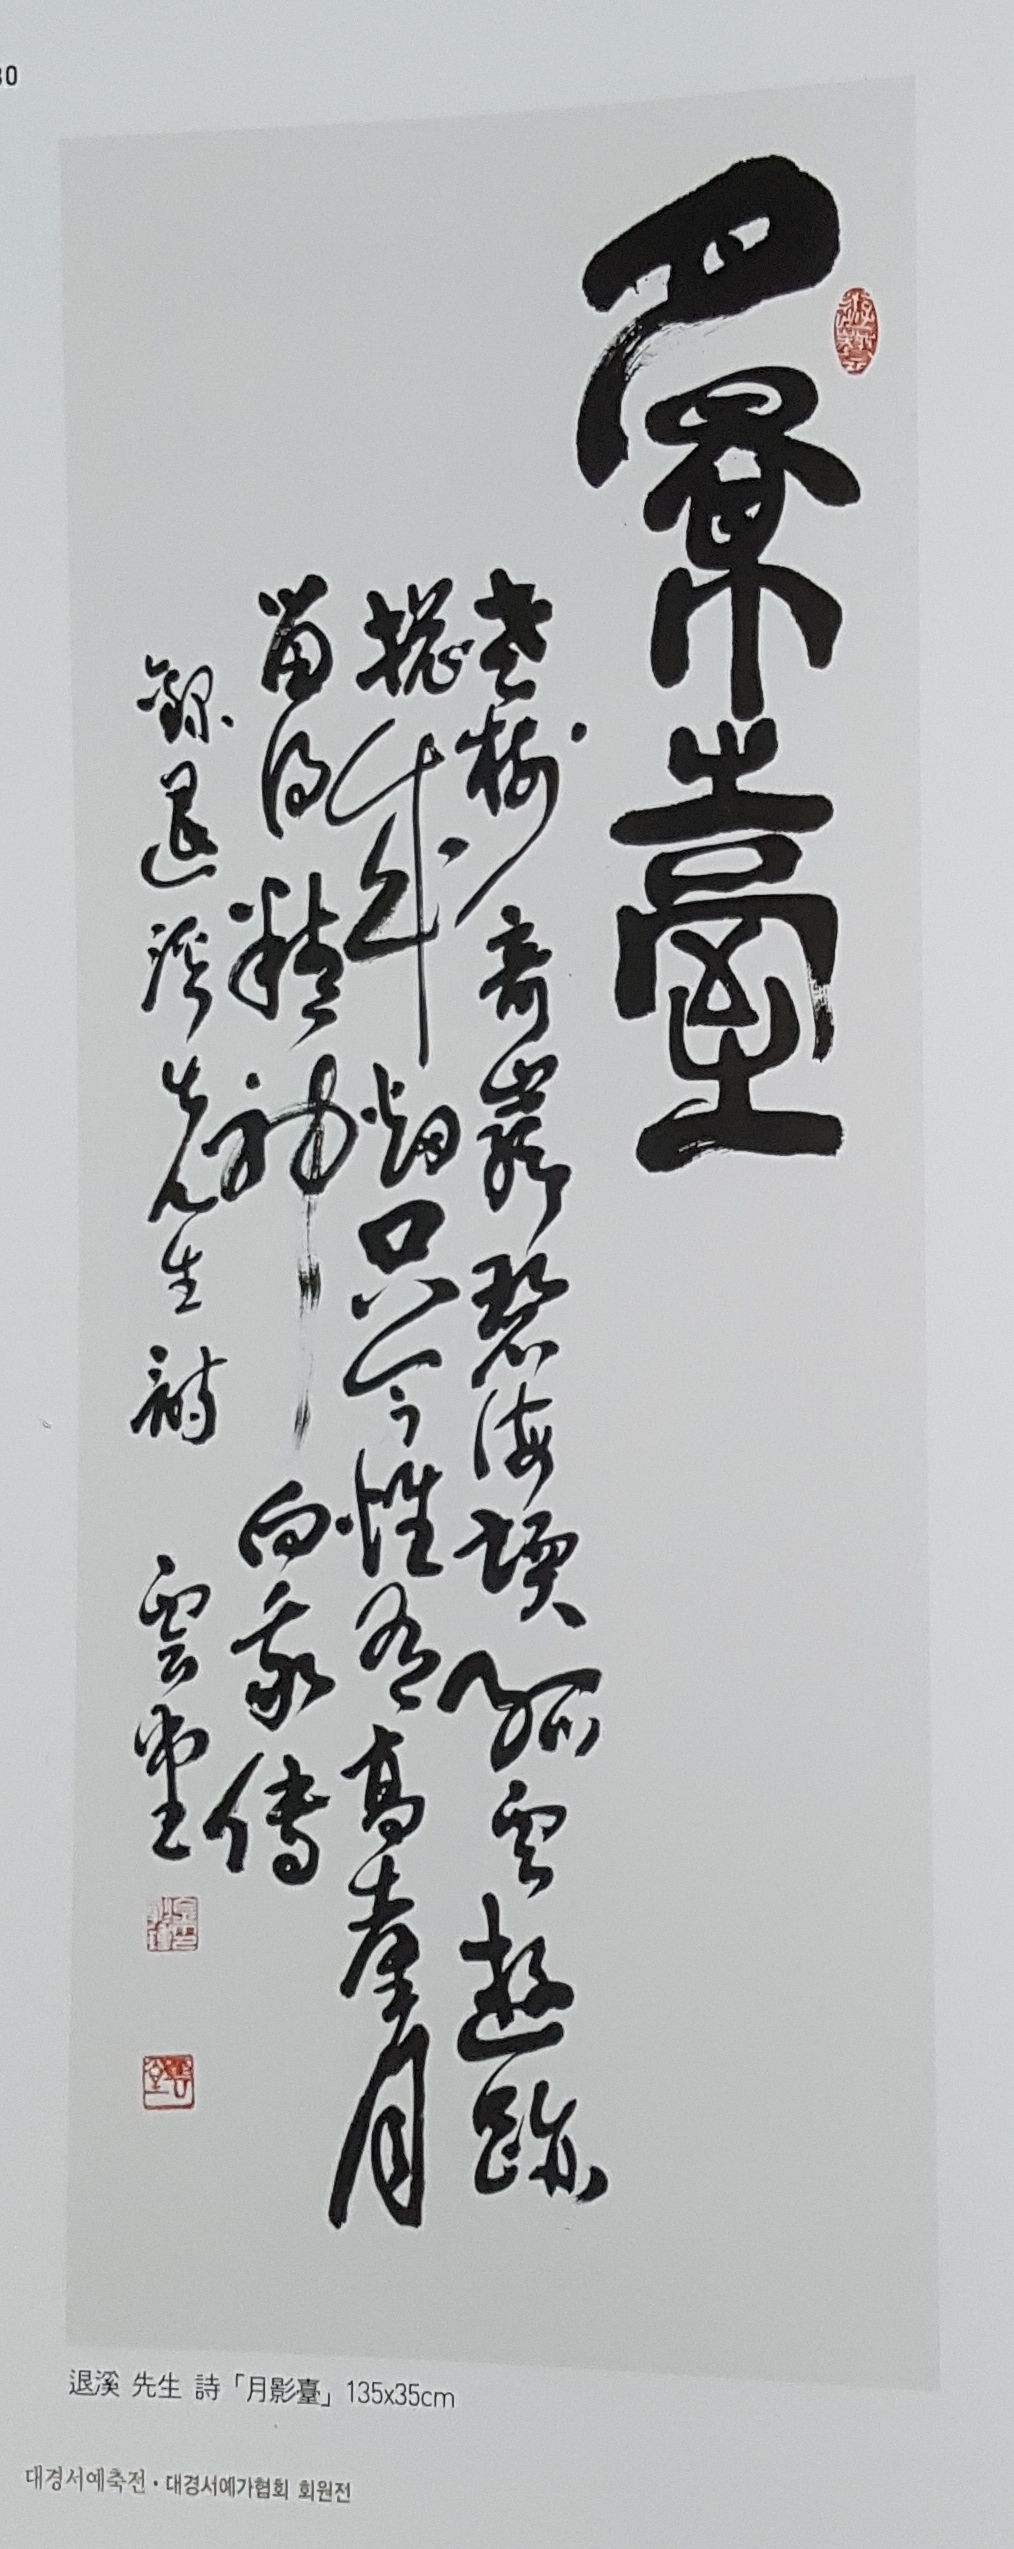 月影臺
老樹奇巖碧海堧孤雲遊跡
摠成烟只今惟有高臺月
留得精神向我傳
錄退溪先生詩 雲堂
退溪 先生 詩「月影臺」135x35cm
대경서예축전·대경서예가협회 회원전